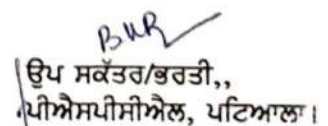 ਉਪ ਸਕੱਤਰ/ਭਰਤੀ,,
ਪੀਐਸਪੀਸੀਐਲ, ਪਟਿਆਲਾ।